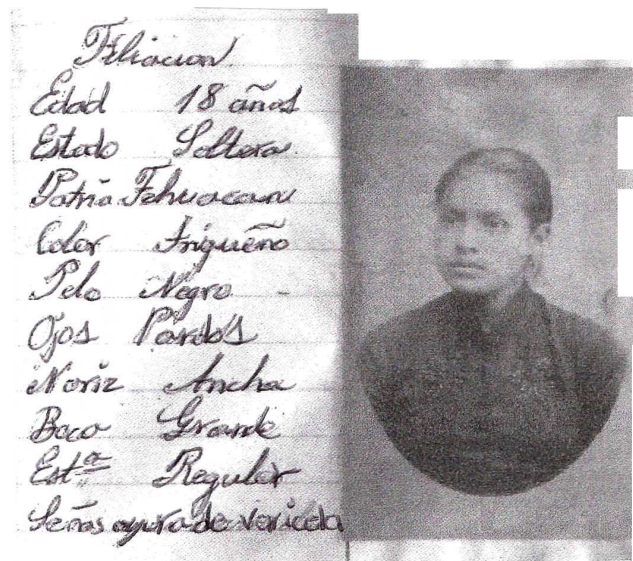 Filiacion
Edad 18 años
Estado Soltera
Patria Tehuacan
Color Trigueño
Pelo Negro
Ojos Pardos
Nariz Ancha
Boca Grande
Est.ª Regular
Señas de